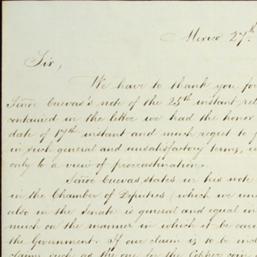 Mexico 27th
Sir,
We have to thank you for
Señor Cuevas's note of the 25th instant, rel
contained in the letter we had the honor
date of 17th instant and much regret to f
in such general and unsatisfactory terms, c
only to a view of procrastination.
Señor Cuevas states in his note
in the Chamber of Deputies (which we un
also in the Senate is general and equal in
much on the manner in which it be carr
the Government. If one claim is to be ins
claims such as the one for the Copper coin